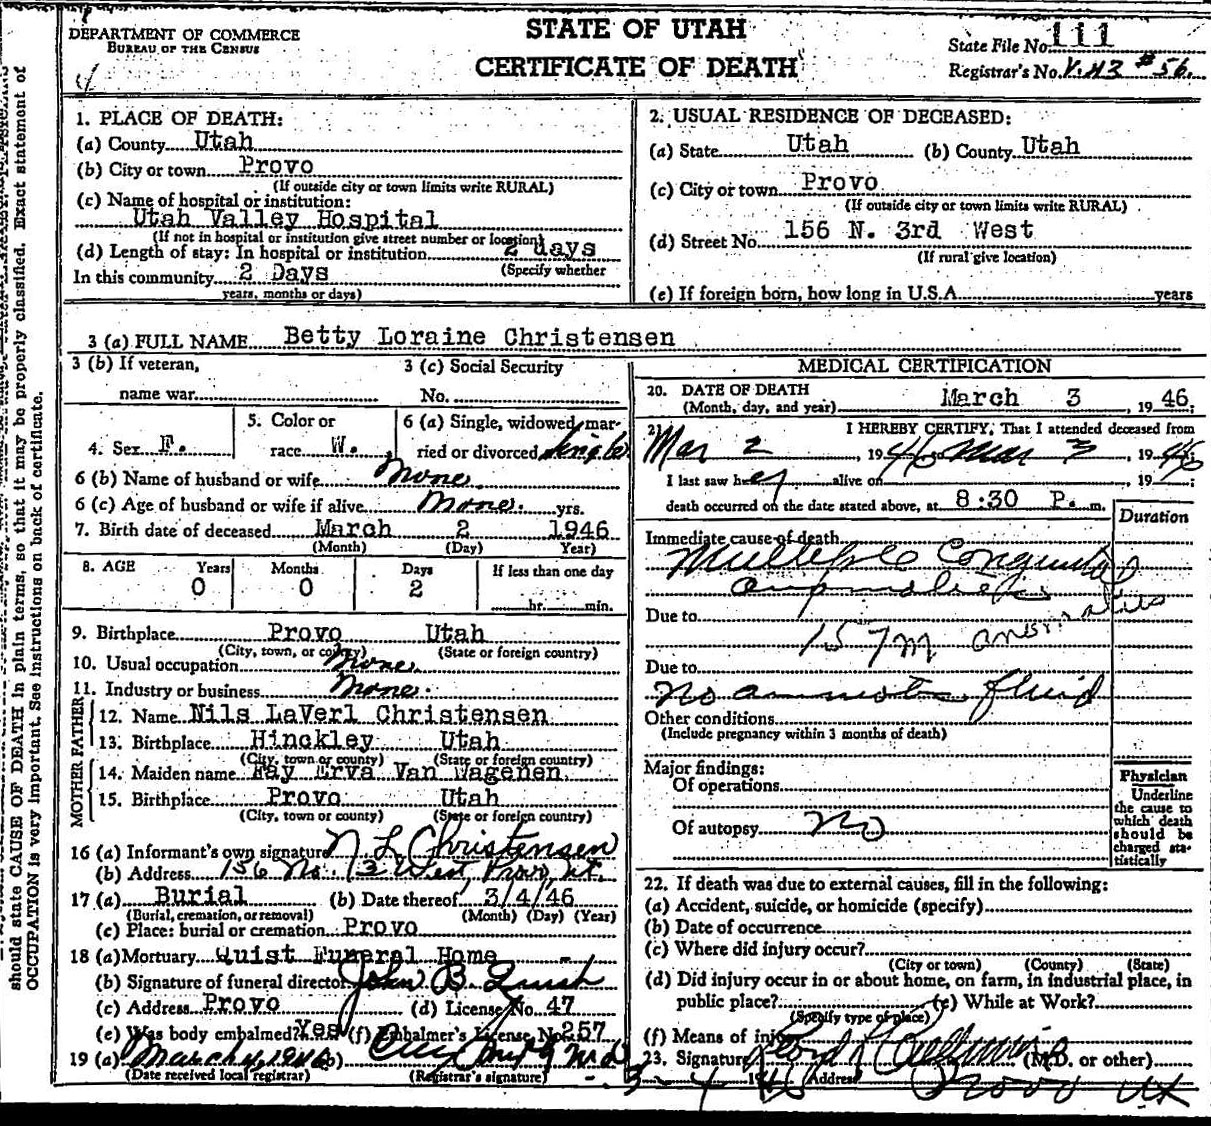 DEPARTMENT OF COMMERCE
BUREAU OF THE CENSUS
STATE OF UTAH
CERTIFICATE OF DEATH
State File No. 111
Registrar's No. V.H3 #56.
should state CAUSE OF DEATH in plain terms, so that it may be properly classified. Exact statement of
OCCUPATION is very important. See instructions on back of certificate.
1. PLACE OF DEATH:
(a) County Utah
(b) City or town Provo
(If outside city or town limits write RURAL)
(c) Name of hospital or institution:
Utah Valley Hospital
(If not in hospital or institution give street number or location)
(d) Length of stay: In hospital or institution 2 days
(Specify whether
In this community 2 Days
years, months or days)
2. USUAL RESIDENCE OF DECEASED:
(a) State Utah (b) County Utah
(c) City or town Provo
(If outside city or town limits write RURAL)
(d) Street No. 156 N. 3rd West
(If rural give location)
(e) If foreign born, how long in U.S.A. years
3 (a) FULL NAME Betty Loraine Christensen
3 (b) If veteran,
name war
3 (c) Social Security
No.
4. Sex F.
5. Color or
race W.
6 (a) Single, widowed, mar-
ried or divorced Single
6 (b) Name of husband or wife None.
6 (c) Age of husband or wife if alive None. yrs.
7. Birth date of deceased March 2 1946
(Month) (Day) Year)
8. AGE Years Months Days If less than one day
0 0 2 hr. min.
9. Birthplace Provo Utah
(City, town, or county) (State or foreign country)
10. Usual occupation None
11. Industry or business None.
FATHER
12. Name Nils LaVerl Christensen
13. Birthplace Hinckley Utah
(City, town or county) (State or foreign country)
MOTHER
14. Maiden name Fay Erva Van Wagenen
15. Birthplace Provo Utah
(City, town or county) (State or foreign country)
16 (a) Informant's own signature N L Christensen
(b) Address 156 No. 3 West, Provo, Ut.
17 (a) Burial (b) Date thereof 3/4/46
(Burial, cremation, or removal) (Month) (Day) (Year)
(c) Place: burial or cremation Provo
18 (a) Mortuary Quist Funeral Home
(b) Signature of funeral director John B. Quist
(c) Address Provo (d) License No. 47
(e) Was body embalmed? Yes (f) Embalmer's License No. 257
19 (a) March 4, 1946 (b)
(Date received local registrar) (Registrar's signature)
MEDICAL CERTIFICATION
20. DATE OF DEATH
(Month, day, and year) March 3, 1946;
21. I HEREBY CERTIFY, That I attended deceased from
Mar 2, 1946 to Mar 3, 1946
I last saw her alive on , 19 ;
death occurred on the date stated above, at 8:30 P. m.
Duration
Immediate cause of death
Multiple Congenital
Due to
anomalies
Due to
No amniotic fluid
Other conditions
(Include pregnancy within 3 months of death)
Major findings:
Of operations
Of autopsy No
Physician
Underline
the cause to
which death
should be
charged sta-
tistically
22. If death was due to external causes, fill in the following:
(a) Accident, suicide, or homicide (specify)
(b) Date of occurrence
(c) Where did injury occur?
(City or town) (County) (State)
(d) Did injury occur in or about home, on farm, in industrial place, in
public place? (e) While at Work?
(Specify type of place)
(f) Means of injury
23. Signature (M.D. or other)
3-4 1946 Address Provo Ut